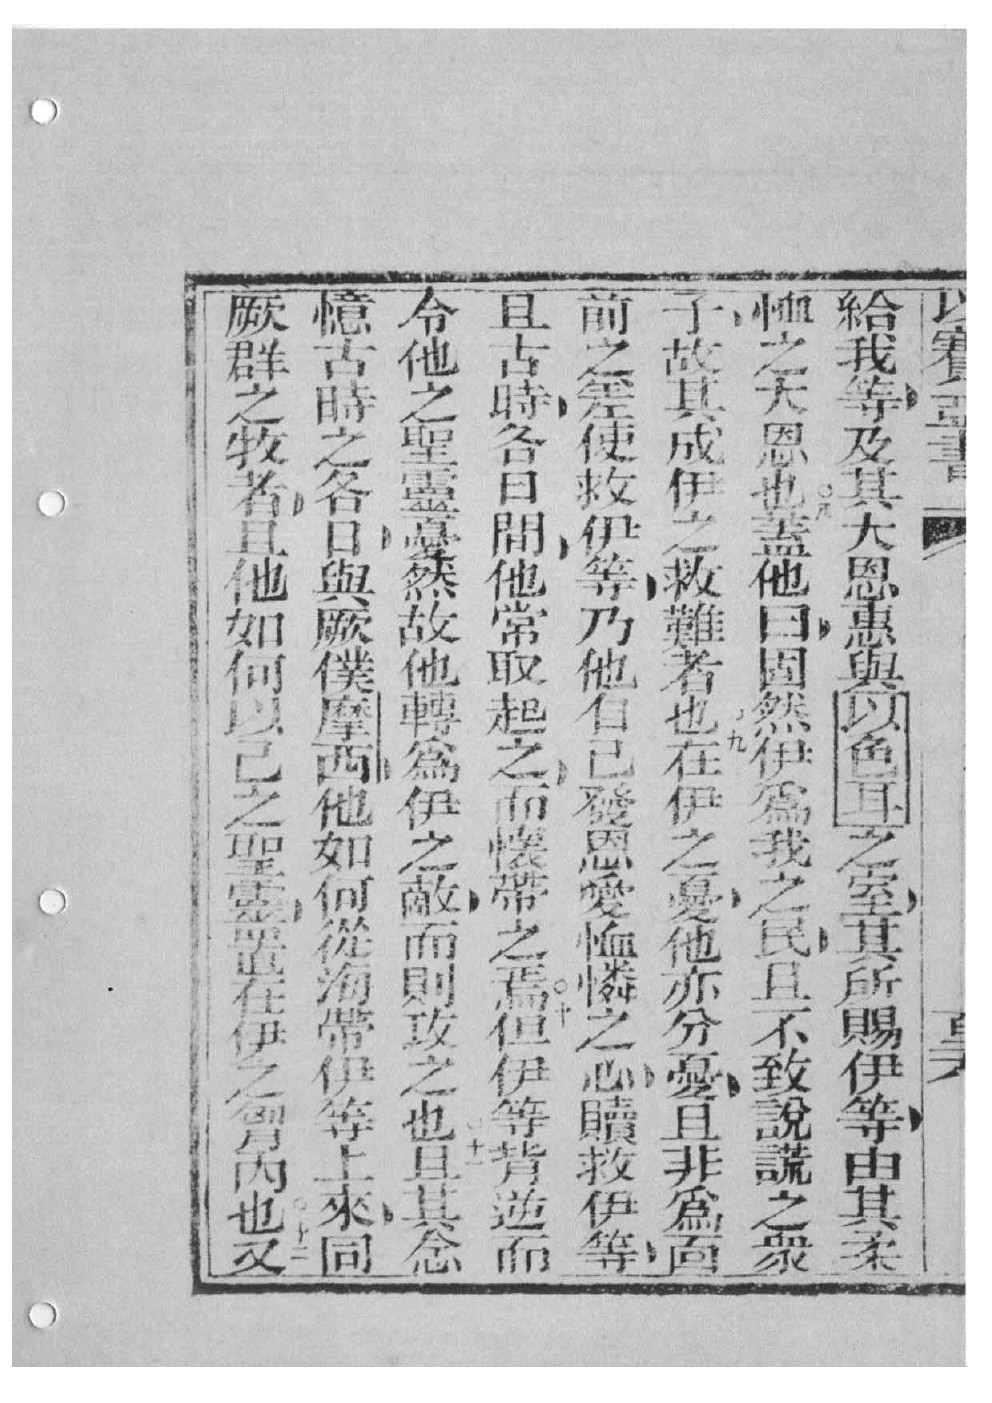 以賽亞書
給我等及其大恩惠與以色耳之室其所賜伊等由其柔
恤之大恩也○八蓋他曰固然伊爲我之民且不致說謊之衆
子故其成伊之救難者也○九在伊之憂他亦分憂且非爲面
前之差使救伊等乃他自己發恩愛恤憐之心贖救伊等
且古時各日間他常取起之而懷帶之焉○十但伊等背逆而
令他之聖靈憂然故他轉爲伊之敵而則攻之也○十一且其念
憶古時之各日與厥僕摩西他如何從海帶伊等上來同
厥群之牧者且他如何以己之聖靈置在伊之胷內也○十二又